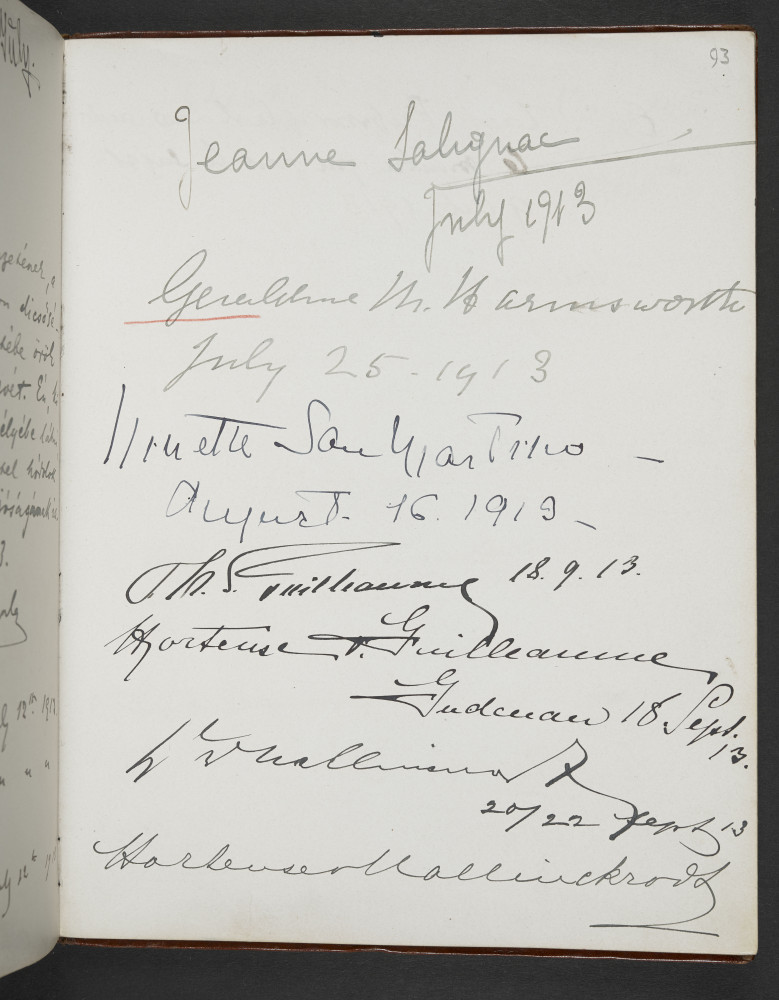 93
Jeanne Salignac
July 1913
Geraldine M. Harmsworth
July 25 - 1913
Ninette San Martino -
August. 16. 1913 -
Th. Guilleaume 18.9.13.
Hortense v. Guilleaume
Gudenau 18 Sept.
13.
v Mallinckrodt
20/22 Sept 13
Hortense v Mallinckrodt